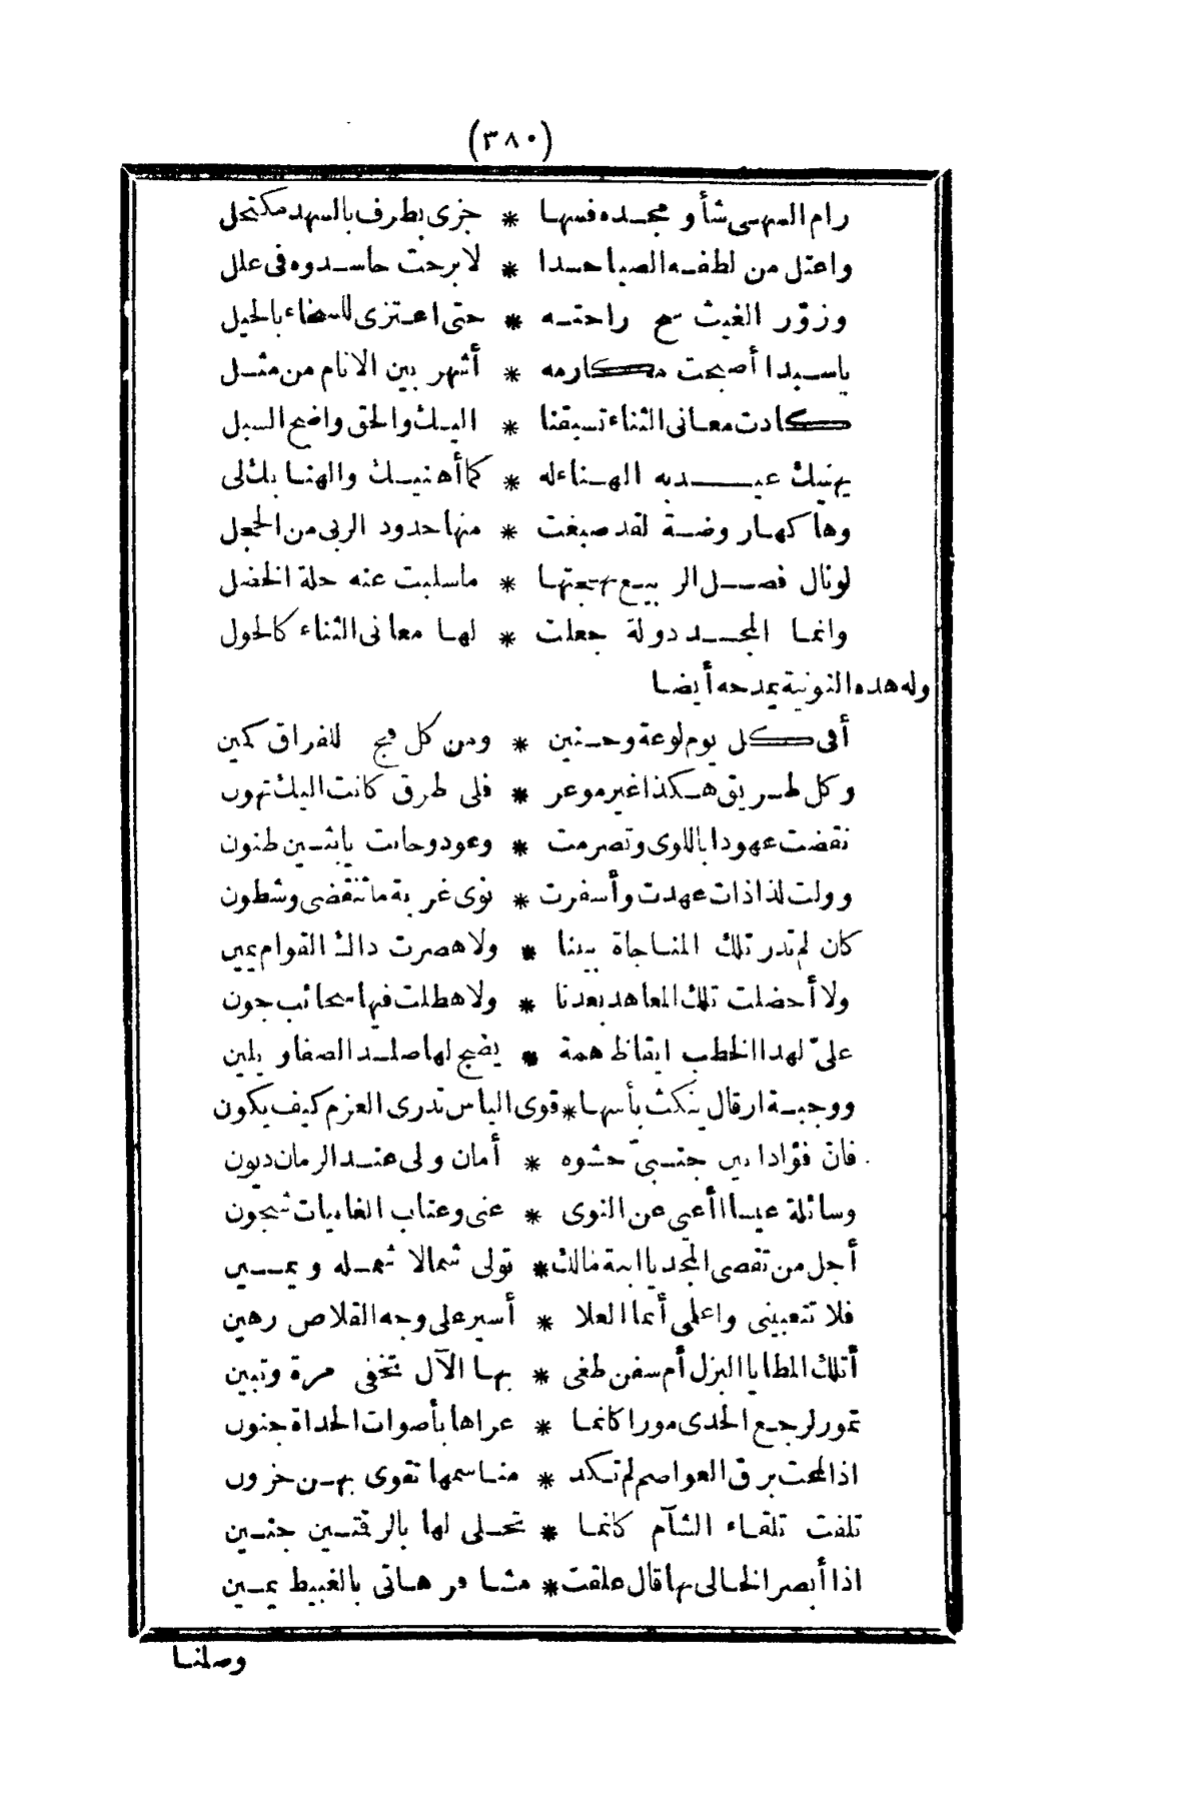 (٣٨٠)
رام السهى شأو مجده فسها * جزى بطرف بالسهد مكتحل
واعتل من لطفه الصبا حسدا * لا برحت حاسدوه فى علل
وزوّر الغيث سح راحته * حتى اعتزى للسخاء بالحيل
ياسيدا أصبحت مكارمه * أشهر بين الانام من مثل
كادت معانى الثناء تسبقنا * اليك والحق واضح السبل
يهنيك عيد به الهناء له * كما أهنيك والهنا بك لى
وها كها روضة لقد صبغت * منها خدود الربى من الخجل
لو نال فصل الربيع بهجتها * ما سلبت عنه حلة الخضل
وانما المجد دولة جعلت * لها معانى الثناء كالخول
وله هذه النونية يمدحه أيضا
أفى كل يوم لوعة وحنين * ومن كل فج للفراق كمين
وكل طريق هكذا غير موعر * فلى طرق كانت اليك تهون
نقضت عهودا باللوى وتصرمت * وعود وخابت يابثين ظنون
وولت لذاذات عهدت وأسفرت * نوى غربة ما تنقضى وشطون
كان لم تدر تلك المناجاة بيننا * ولا هصرت ذاك القوام يمين
ولا أخضلت تلك المعاهد بعدنا * ولا هطلت فيها سحائب جون
علىّ لهذا الخطب ايقاظ همة * يضج لها صلد الصفا ويلين
ووجبة ارقال ينكث بأسها * قوى الباس تدرى العزم كيف يكون
فان فؤادا بين جنبىّ حشوه * أمان ولى عند الزمان ديون
وسائلة عيسا أأعبى عن النوى * عنى وعتاب الغانيات شجون
أجل من تقصى المجد يا ابنة مالك * تولى شمالا شمله ويمين
فلا تتعبينى واعلمى أنما العلا * أسير على وجه القلاص رهين
أتلك المطايا البزل أم سفن طغى * بها الآل تخفى مرة وتبين
تمور لرجع الحدى مورا كانما * عراها بأصوات الحداة جنون
اذا لمحت برق العواصم لم تكد * مناسمها تقوى بهن حزون
تلفت تلقاء الشآم كانما * تحلى لها بالرقتين جنين
اذا أبصر الخالى بها قال علقت * مشافرهاتى بالغبيط يمين
وصلنا